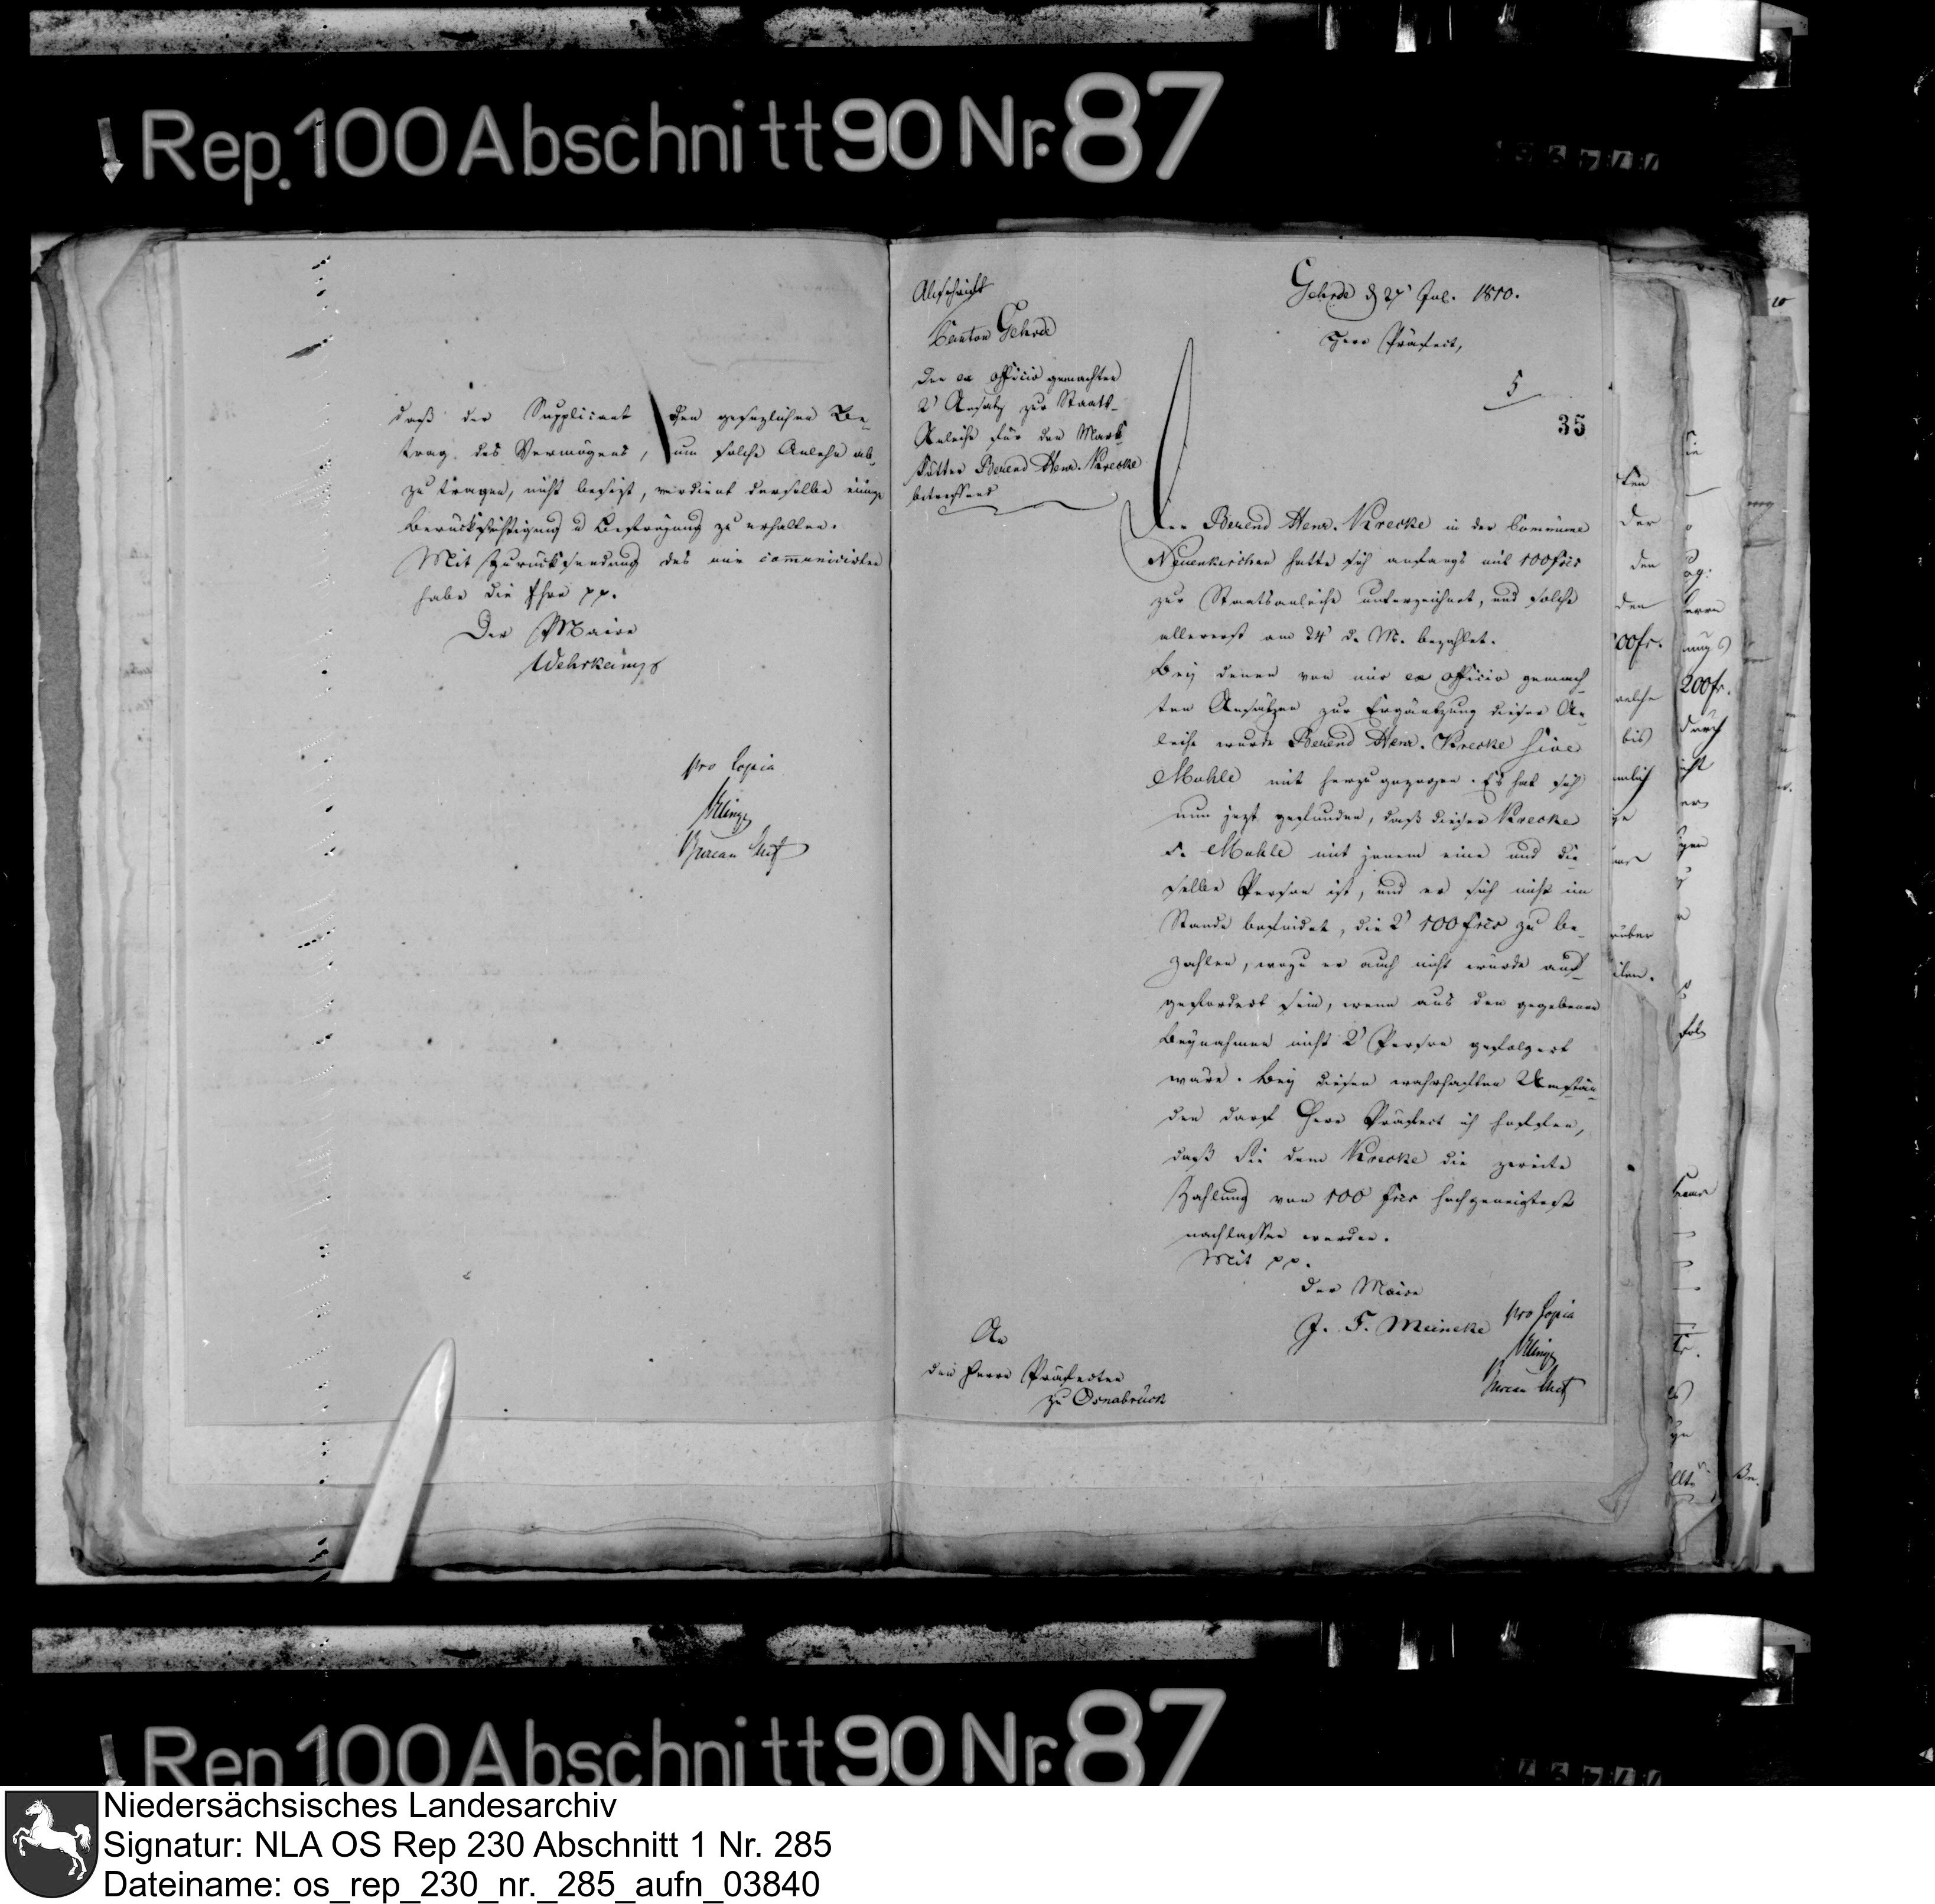 Rep. 100 Abschnitt 90 Nr. 87
daß der Supplicant den gesezlichen Be-
trag des Vermögens, um solche Anlehn ab-
zu tragen, nicht besizt, verdient derselbe einige
Berücksichtigung u Befreyung zu erhalten.
Mit Zurücksendung des mir communicirten
habe die Ehre pp.
Der Maire
Wehrkamp
pro Copia
Bureau Chef
Abschrift
Canton Gehrde
Den ex officio gemachten
2' Ansatz zur Staats-
Anleihe für den Mark-
kötter Berend Henr. Krecke
betreffend
Gehrde d 27' Jul. 1810.
Herr Präfect,
5
35
Der Berend Henr. Krecke in der Commüne
Neuenkirchen hatte sich anfangs mit 100 frcs
zur Staatsanleihe unterzeichnet, und solche
allererst am 24' d. M. bezahlet.
Bey denen von mir ex officio gemach
ten Ansätzen zur Ergäntzung dieser An-
leihe wurde Berend Henr. Krecke sive
Muhle mit herzugezogen. Es hat sich
nun jezt gefunden, daß dieser Krecke
s. Muhle mit jenem eine und die
selbe Person ist, und er sich nicht im
Stande befindet, die 2' 100 frcs zu be-
zahlen, wozu er auch nicht würde auf-
gefordert sein, wenn aus den gegebenen
Beynahmen nicht 2' Person gefolgert
wäre. Bey diesen wahrhaften Umstän-
den darf Herr Präfect ich hoffen,
daß Sie dem Krecke die zweite
Zahlung von 100 frcs hochgeneigtest
nachlassen werden.
Mit pp.
Der Maire
J. F. Meineke
pro Copia
Bureau Chef
An
den Herrn Präfecten
zu Osnabrück
Rep. 100 Abschnitt 90 Nr. 87
Niedersächsisches Landesarchiv
Signatur: NLA OS Rep 230 Abschnitt 1 Nr. 285
Dateiname: os_rep_230_nr._285_aufn_03840